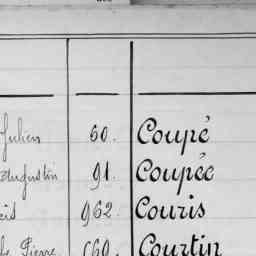 Julien 60. Coupé
Augustin 91. Coupée
962. Couris
Pierre 660. Courtin